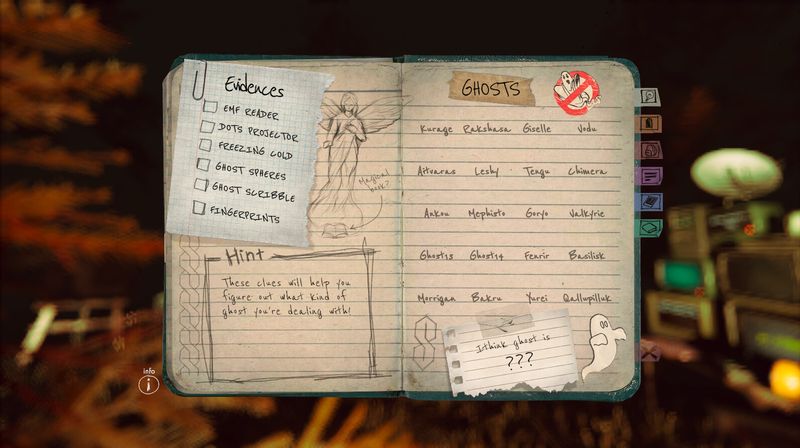 Evidences
EMF READER
DOTS PROJECTOR
FREEZING COLD
GHOST SPHERES
GHOST SCRIBBLE
FINGERPRINTS
Magical
book?
Hint
These clues will help you
figure out what kind of
ghost you're dealing with!
info
GHOSTS
Kurage Rakshasa Giselle Vodu
Aitvaras Leshy Tengu Chimera
Ankou Mephisto Goryo Valkyrie
Ghost13 Ghost14 Fenrir Basilisk
Morrigan Bakru Yurei Qallupilluk
I think ghost is
???